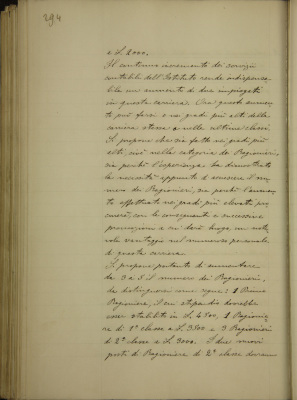 294
a L. 2000.
Il continuo incremento dei servizi
contabili dell'Istituto rende indispensa-
bile un aumento di due impiegati
in questa carriera. Ora questo aumen-
to può farsi o nei gradi più alti della
carriera stessa o nelle ultime classi.
Si propone che sia fatto nei gradi più
alti, cioè nella categoria dei Ragionieri,
sia perchè l'esperienza ha dimostrato
la necessità appunto di accrescere il nu-
mero dei Ragionieri, sia perchè l'aumen-
to effettuato nei gradi più elevati pro-
curerà, con le conseguenti e successive
promozioni a cui darà luogo, un note-
vole vantaggio nel numeroso personale
di questa carriera.
Si propone pertanto di aumentare
da 3 a 5 il numero dei Ragionieri,
da distinguersi come segue: 1 Primo
Ragioniere, il cui stipendio dovrebbe
esser stabilito in L. 4500, 1 Ragionie-
re di 1ª classe a L. 3500 e 3 Ragionieri
di 2ª classe a L. 3000. I due nuovi
posti di Ragioniere di 2ª classe devono